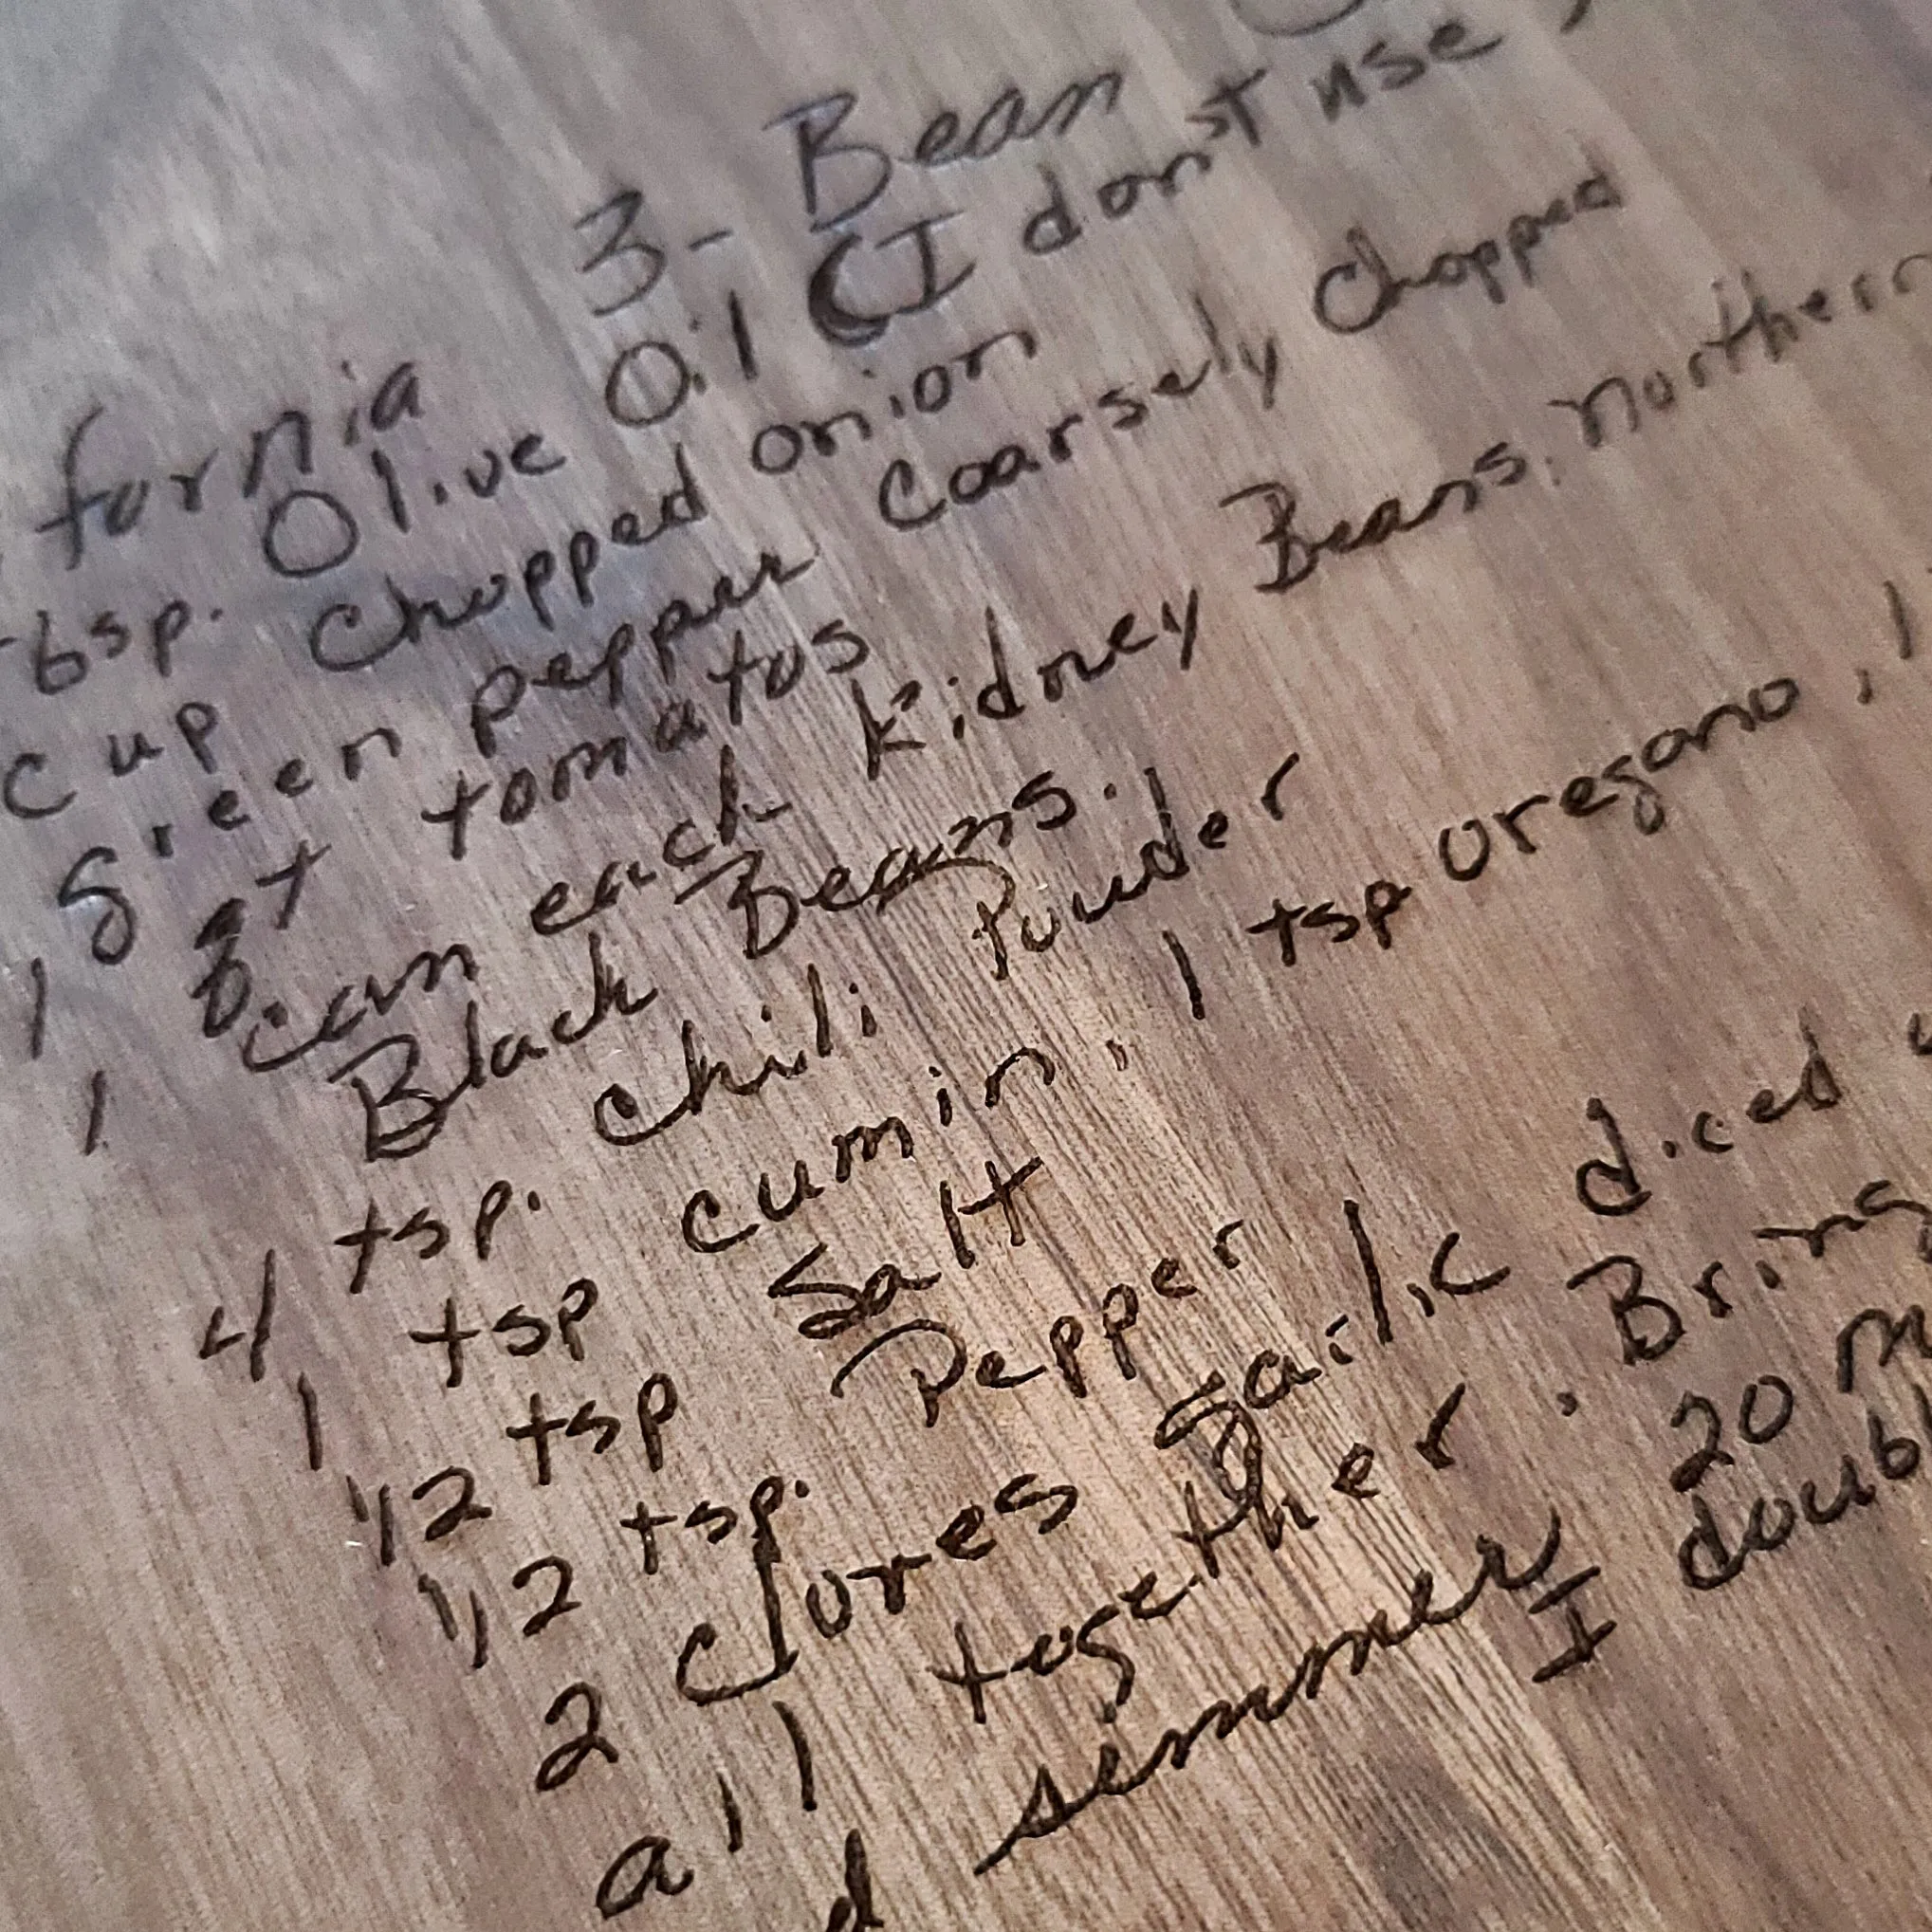 fornia 3- Bean
bsp. Olive Oil (I don't use
cup chopped onion
1 green pepper coarsely chopped
1 qt tomatos
can each kidney Beans, northern
Black Beans.
4 tsp. chili Powder
1 tsp cumin, 1 tsp oregano, 1
1/2 tsp Salt
1/2 tsp. Pepper
2 cloves garlic diced
all together. Bring
d simmer 20 m
I doubl